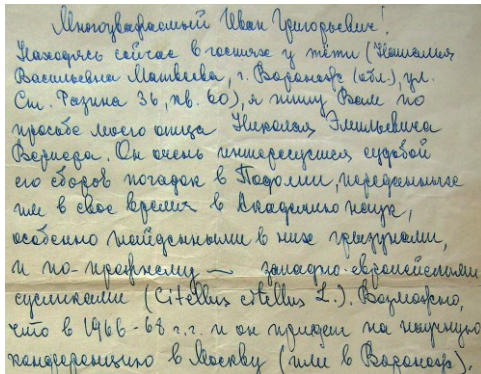 Многоуважаемый Иван Григорьевич!
Находясь сейчас в гостях у тёти (Наталия
Васильевна Матвеева, г. Воронеж (обл.), ул.
Ст. Разина 36, кв. 60), я пишу Вам по
просьбе моего отца Николая Эмильевича
Вернера. Он очень интересуется судьбой
его сборов погадок в Подолии, переданные
им в свое время в Академию наук,
особенно найденными в них грызунами,
и по-прежнему — западно-европейскими
сусликами (Citellus citellus L.). Возможно,
что в 1966-68 г.г. и он приедет на научную
конференцию в Москву (или в Воронеж).